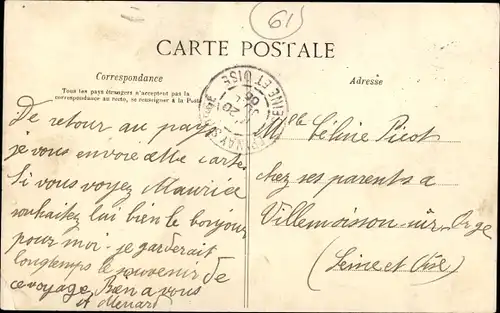 61
CARTE POSTALE
Correspondance
Tous les pays étrangers n'acceptent pas la
correspondance au recto, se renseigner à la Poste
Adresse
SEINE ET OISE
De retour au pays
je vous envoie cette carte
Si vous voyez Maurice
souhaitez lui bien le bonjour
pour moi. je garderait
longtemps le souvenir de
ce voyage Bien a vous
A Menard
Mlle Céline Picot
chez ses parents a
Villemoisson-sur Orge
(Seine et Oise)